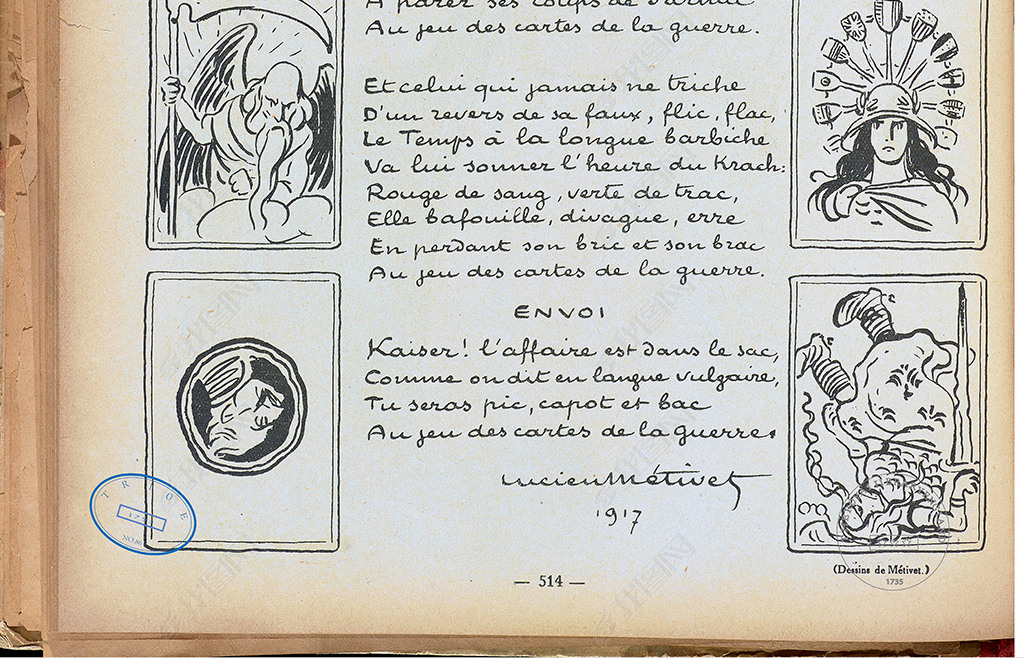 A parer ses coups de
Au jeu des cartes de la guerre.
Et celui qui jamais ne triche
D'un revers de sa faux, flic, flac,
Le Temps à la longue barbiche
Va lui sonner l'heure du Krach:
Rouge de sang, verte de trac,
Elle bafouille, divague, erre
En perdant son bric et son brac
Au jeu des cartes de la guerre.
ENVOI
Kaiser! l'affaire est dans le sac,
Comme on dit en langue vulgaire,
Tu seras pic, capot et bac
Au jeu des cartes de la guerre.
Lucien Métivet
1917
TROE
(Dessins de Métivet.)
1735
— 514 —